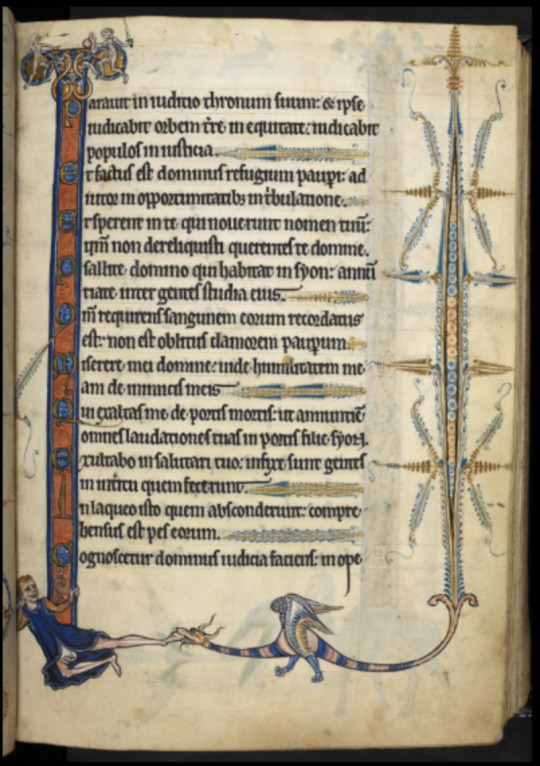 Paravit in iudicio thronum suum: & ipse
iudicabit orbem tre in equitate: iudicabit
populos in iusticia.
Et factus est dominus refugium paupi: ad
iutor in oportunitatib; in tribulatione.
Et sperent in te qui noverunt nomen tuu:
qm non dereliquisti querentes te domine.
Psallite domino qui habitat in syon: annu
tiate inter gentes studia eius.
Qm requirens sanguinem eorum recordatus
est: non est oblitus clamorem pauperum.
Miserere mei domine: vide humilitatem me
am de inimicis meis
Qui exaltas me de portis mortis: ut annuntie
omnes laudationes tuas in portis filie syon.
Exultabo in salutari tuo: infixe sunt gentes
in interitu quem fecerunt.
In laqueo isto quem absconderunt: compre
hensus est pes eorum.
Cognoscetur dominus iudicia faciens: in ope